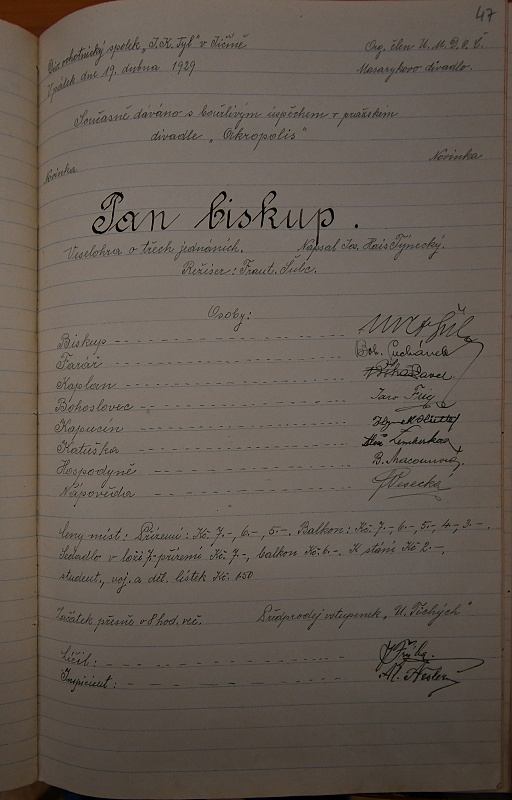 47
Div. ochotnický spolek „J. K. Tyl" v Jičíně
Org. člen Ú. M. D. O. Č.
V pátek dne 19. dubna 1929
Masarykovo divadlo.
Současně dáváno s bouřlivým úspěchem v pražském
divadle „Akropolis"
Novinka
Novinka
Pan biskup.
Veselohra o třech jednáních.
Napsal Jos. Hais Týnecký.
Režiser: Frant. Šulc.
Osoby:
Biskup
Farář
Kaplan
Pavel
Bohoslovec
Jaro
Kapucín
Katuška
Hospodyně
B.
Nápověda
Ceny míst: Přízemí: Kč 7.-, 6.-, 5.-. Balkon: Kč. 7.-, 6.-, 5.-, 4.-, 3.-.
Sedadlo v loži I. přízemí Kč. 7.-, balkon Kč. 6.-. K stání Kč 2.-,
student., voj. a dět. lístek Kč. 1.50.
Začátek přesně v 8 hod. več.
Předprodej vstupenek „U Tichých"
Líčil:
Inspicient: